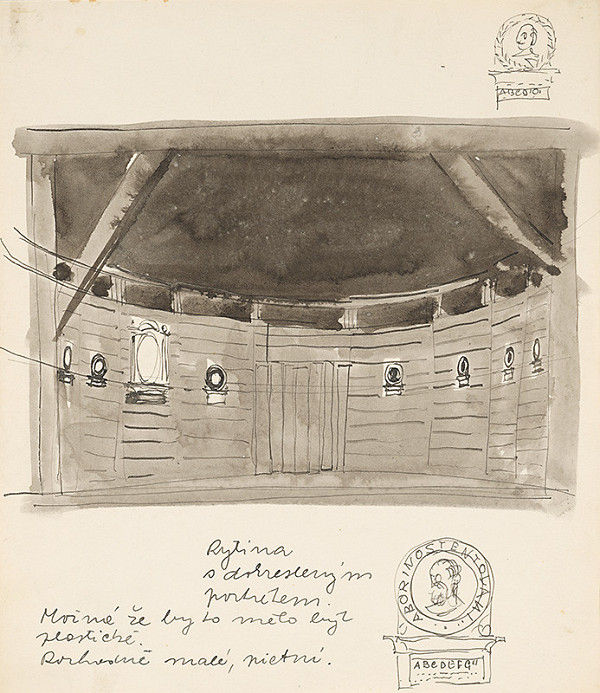 ABCDFG
Rytina
s dokresleným
portrétem.
Možná že by to mělo být
plastické.
Rozhodně malé, pietní.
ABORINOSTENTOVANI
ABCDEFGH